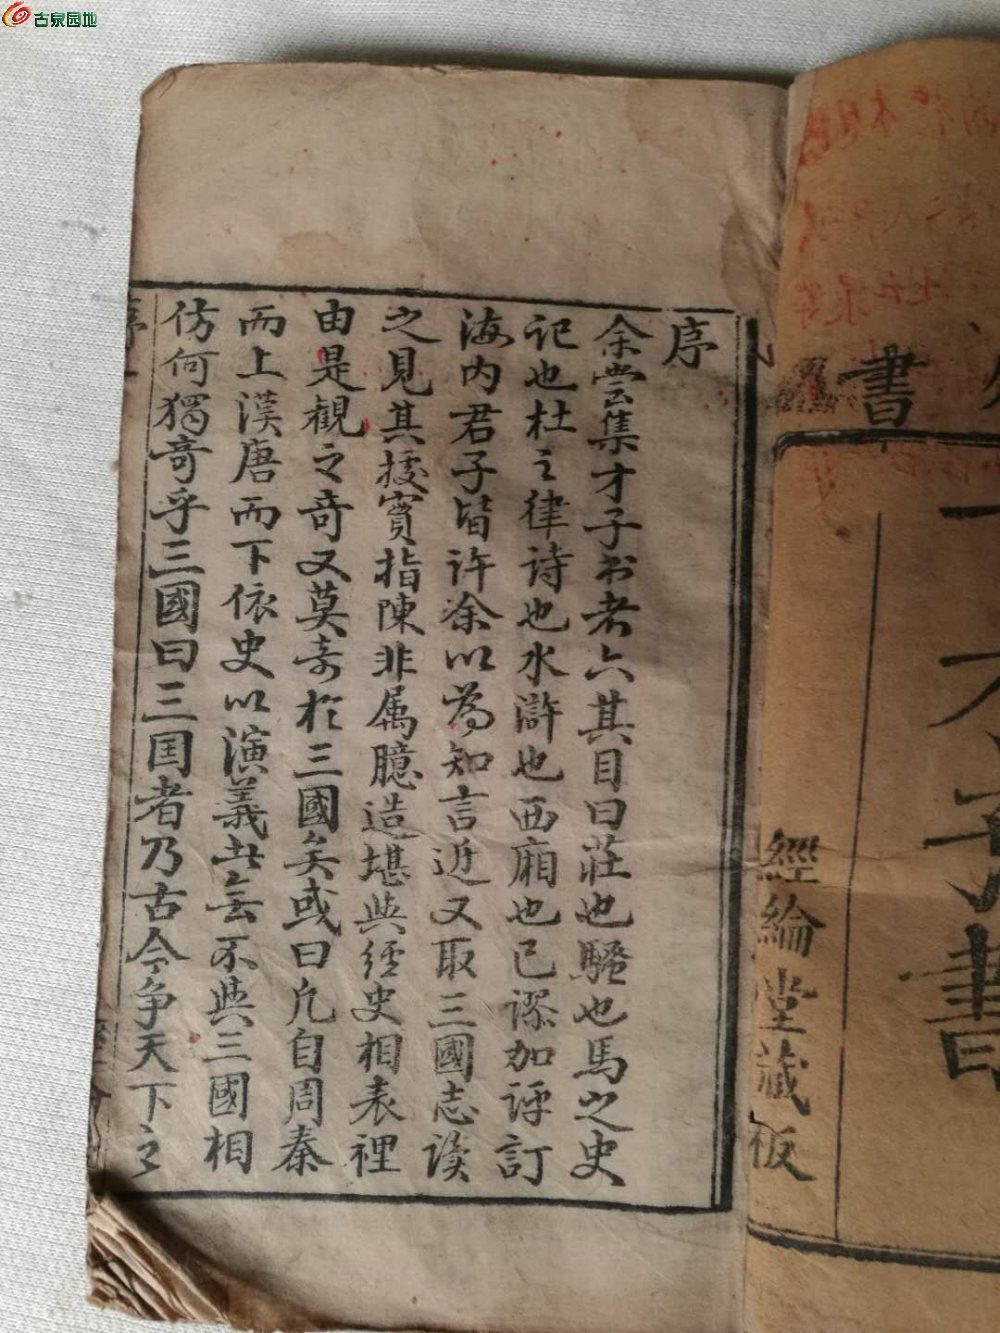 古泉园地
書
才子書
經綸堂藏板
序
余嘗集才子书考六其目曰莊也騷也馬之史
記也杜之律诗也水滸也西廂也已謬加评訂
海内君子皆许余以為知言近又取三國志读
之見其據實指陳非属臆造堪與经史相表裡
由是観之奇又莫奇於三國矣或曰凢自周秦
而上漢唐而下依史以演義此無不與三國相
仿何獨奇乎三國曰三国者乃古今争天下之
序